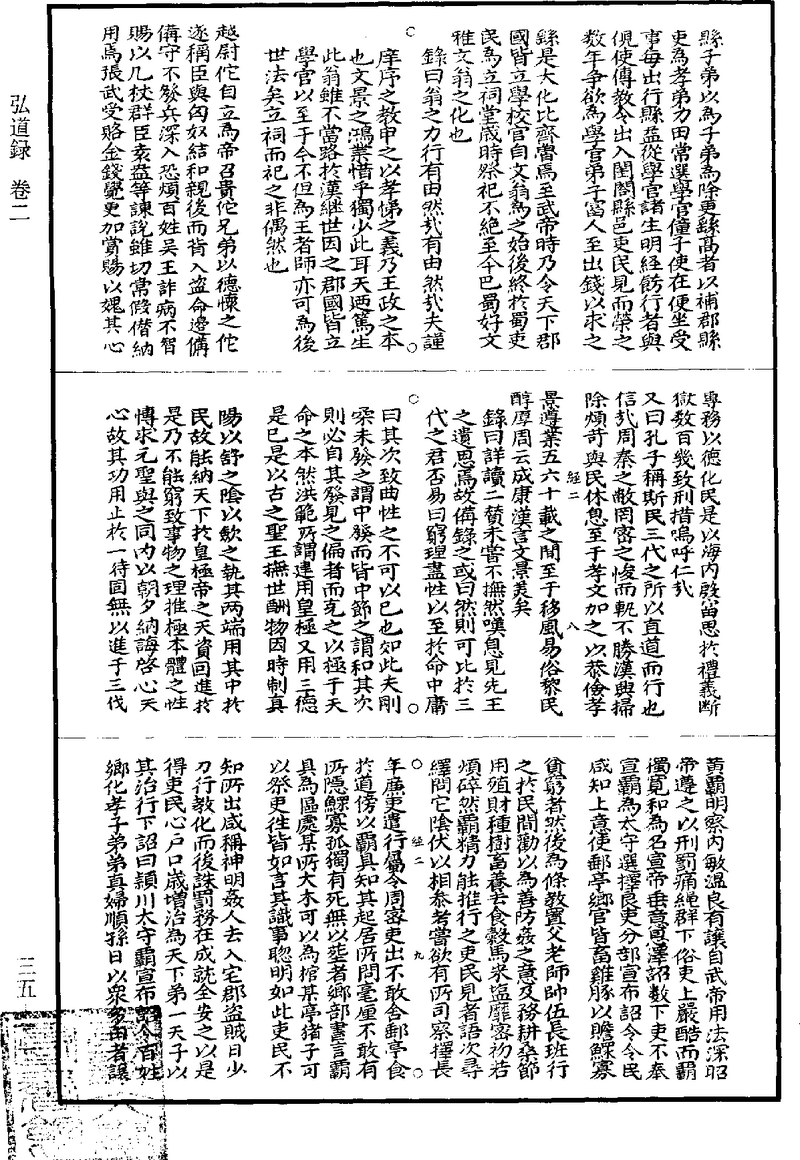 弘道録 卷二
三五
縣子弟以為子弟為除更繇高者以補郡縣
吏為孝弟力田常選學官僮子使在便坐受
事每出行縣益從學官諸生明經飭行者與
俱使傳教令出入閨閤縣邑吏民見而榮之
数年争欲為學官弟子富人至出錢以求之
繇是大化比齊魯焉至武帝時乃令天下郡
國皆立學校官自文翁為之始後終於蜀吏
民為立祠堂歲時祭祀不絶至今巴蜀好文
雅文翁之化也
録曰翁之力行有由然哉有由然哉夫謹
庠序之教申之以孝悌之義乃王政之本
也文景之鴻業惜乎獨少此耳天迺篤生
此翁雖不當路於漢継世因之郡國皆立
學官以至于今不但為王者師亦可為後
世法矣立祠而祀之非偶然也
越尉佗自立為帝召貴佗兄弟以德懷之佗
遂稱臣與匈奴結和親後而背入盗命邊備
備守不發兵深入恐煩百姓吴王詐病不
賜以几杖群臣袁盎等諫說雖切常假借納
用焉張武受賂金錢覺更加賞賜以媿其心
專務以德化民是以海内殷富思於禮義断
獄数百幾致刑措嗚呼仁哉
又曰孔子稱斯民三代之所以直道而行也
信哉周秦之敝罔密文峻而軌不勝漢興掃
除煩苛與民休息至于孝文加之以恭儉孝
景遵業五六十載之間至于移風易俗黎民
醇厚周云成康漢言文景美矣
録曰詳讀二賛未嘗不撫然嘆息見先王
之遺思焉故備録之或曰然則可比於三
代之君否易曰窮理盡性以至於命中庸
曰其次致曲性之不可以已也如此夫剛
柔未發之謂中發而皆中節之謂和其次
則必自其發見之偏者而克之以極于天
命之本然洪範所謂建用皇極又用三德
是已是以古之聖王撫世酬物因時制冝
陽以舒之陰以歛之執其两端用其中於
民故能納天下於皇極帝之天資回進於
是乃不能窮致事物之理推極本體之性
慱求元聖與之同内以朝夕納誨啓心天
心故其功用止於一待固無以進于三代
經二 八
黄霸明察内敏温良有讓自武帝用法深昭
帝遵之以刑罰痛繩群下俗吏上嚴酷而霸
獨寛和為名宣帝垂意恩澤詔數下吏不奉
宣霸為太守選擇良吏分部宣布詔令令民
咸知上意使郵亭鄉官皆畜雞豚以贍鰥寡
貧窮者然後為條教置父老師帥伍長班行
之於民間勸以為善防姦之意及務耕桑節
用殖財種樹畜養去食穀馬米塩靡密初若
煩碎然霸精力能推行之吏民見者語次尋
繹問它陰伏以相参考嘗欲有所司察擇長
年廉吏遣行屬令周密吏出不敢舍郵亭食
於道傍以霸具知其起居所問毫厘不敢有
所隠鰥寡孤獨有死無以塟者鄉部書言霸
具為區處某所大木可以為棺某亭猪子可
以祭吏徃皆如言其識事聡明如此吏民不
知所出咸稱神明姦人去入它郡盗賊日少
力行教化而後誅罰務在成就全安之以是
得吏民心户口歳增治為天下第一天子以
其治行下詔曰頴川太守霸宣布詔令百姓
鄉化孝子弟弟貞婦順孫日以衆多田者讓
經二 九